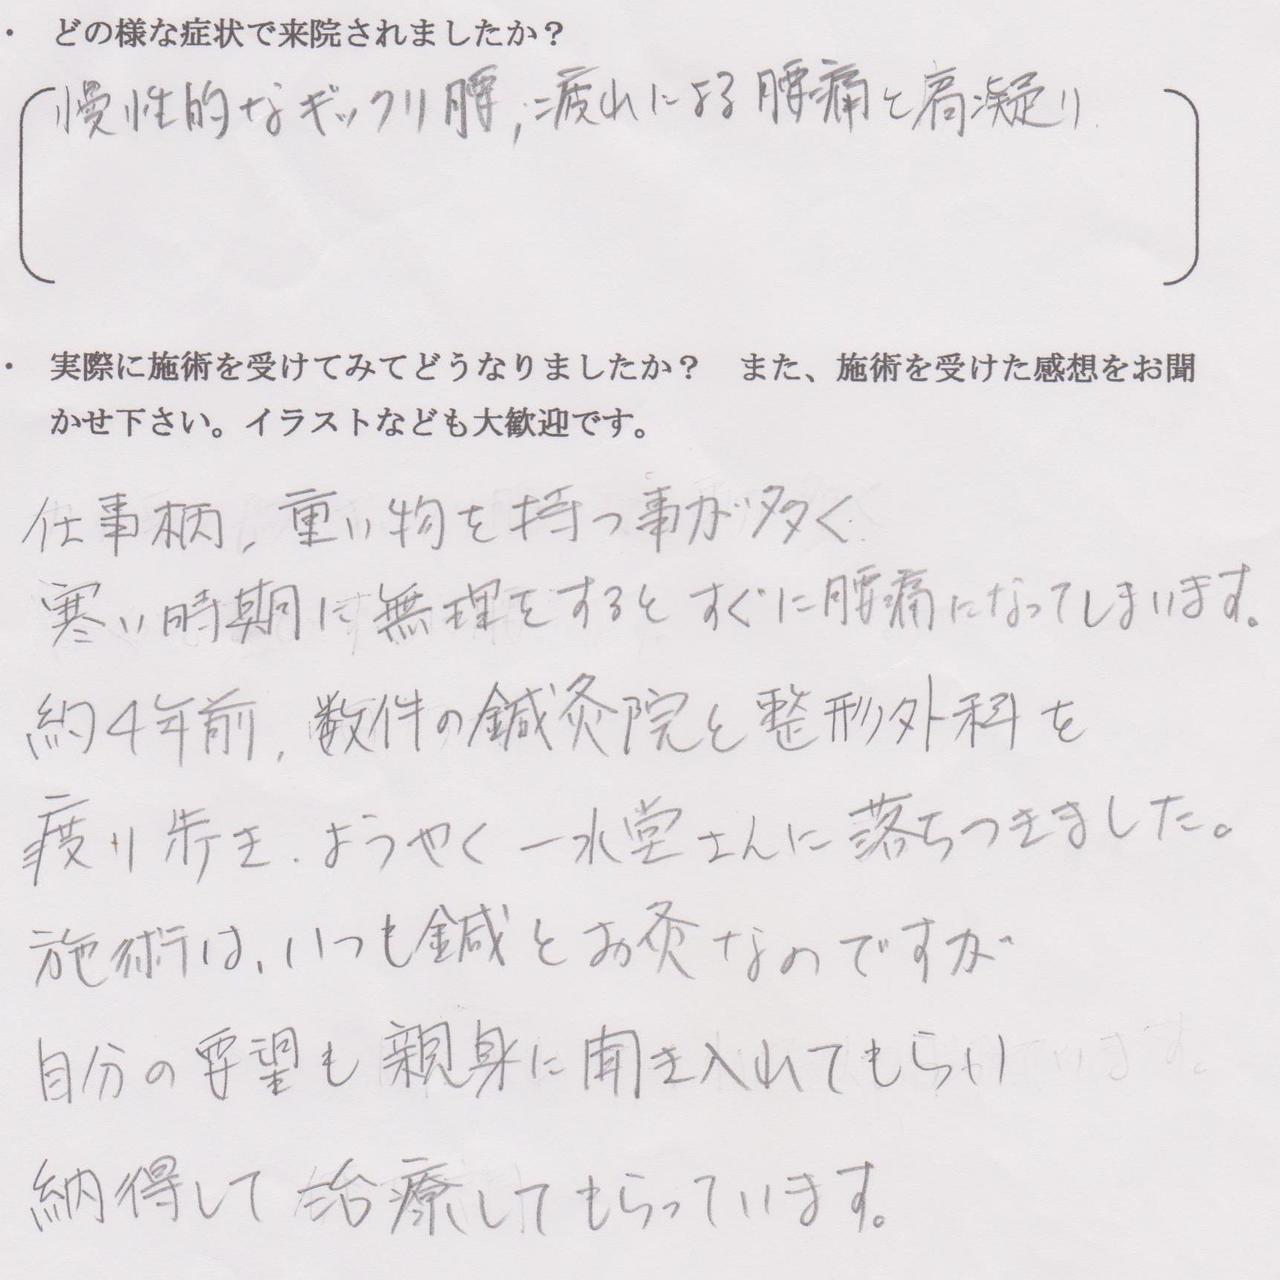 ・ どの様な症状で来院されましたか？
慢性的なギックリ腰, 疲れによる腰痛と肩凝り
・ 実際に施術を受けてみてどうなりましたか？　また、施術を受けた感想をお聞
かせ下さい。イラストなども大歓迎です。
仕事柄、重い物を持つ事が多く
寒い時期に無理をするとすぐに腰痛になってしまいます。
約4年前、数件の鍼灸院と整形外科を
渡り歩き、ようやく一水堂さんに落ちつきました。
施術は、いつも鍼とお灸なのですが
自分の要望も親身に聞き入れてもらい
納得して治療してもらっています。